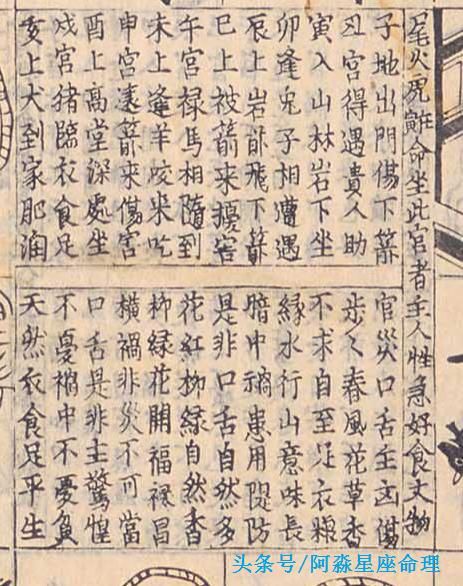 尾火虎雖命坐此宮者主人性急好食丈物
子地出門傷下箭
官災口舌主凶傷
丑宮得遇貴人助
步々春風花草香
寅入山林岩下坐
不求自至足衣粮
卯逢兔子相遭遇
緑水行山意味長
辰上岩前飛下箭
暗中禍患用隄防
巳上被箭来擾害
是非口舌自然多
午宮禄馬相隨到
花紅柳緑自然香
未上逢羊咬米吃
柳緑花開福禄昌
申宮遠箭来傷害
橫禍非災不可當
酉上高堂深處坐
口舌是非主驚惶
戌宮猪臨衣食足
不憂禍中不憂負
亥上犬到家肥潤
天然衣食足平生
头条号/阿淼星座命理